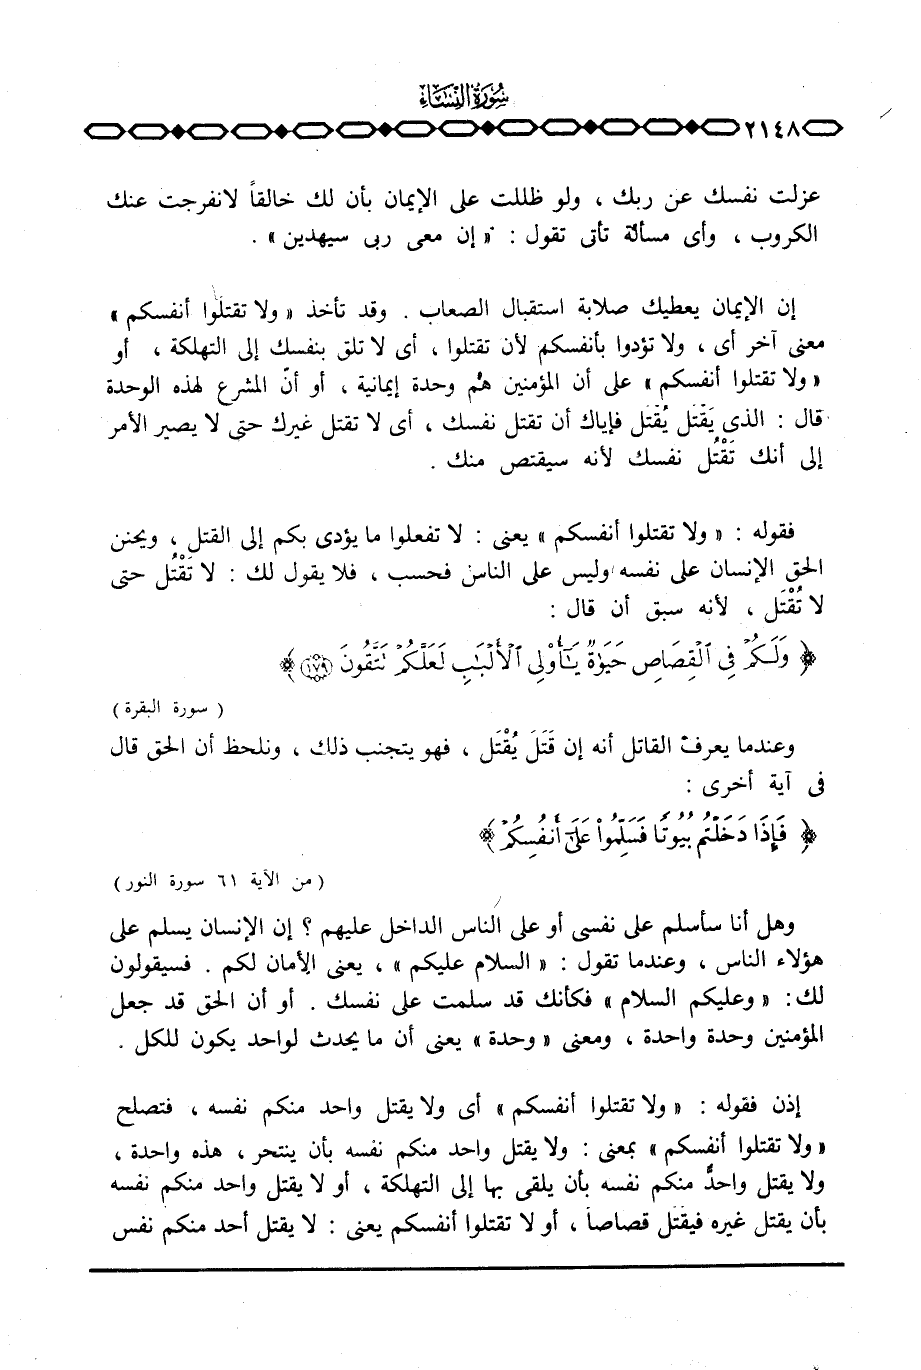 سورة النساء
٢١٤٨
عزلت نفسك عن ربك ، ولو ظللت على الإيمان بأن لك خالقاً لانفرجت عنك
الكروب ، وأى مسألة تأتى تقول : « إن معى ربى سيهدين » .
إن الإيمان يعطيك صلابة استقبال الصعاب . وقد تأخذ « ولا تقتلوا أنفسكم »
معنى آخر أى ، ولا تؤدوا بأنفسكم لأن تقتلوا ، أى لا تلق بنفسك إلى التهلكة ، أو
« ولا تقتلوا أنفسكم » على أن المؤمنين هُم وحدة إيمانية ، أو أنّ المشرع لهذه الوحدة
قال : الذى يَقْتل يُقْتَل فإياك أن تقتل نفسك ، أى لا تقتل غيرك حتى لا يصير الأمر
إلى أنك تَقْتُل نفسك لأنه سيقتص منك .
فقوله : « ولا تقتلوا أنفسكم » يعنى : لا تفعلوا ما يؤدى بكم إلى القتل ، ويحنن
الحق الإنسان على نفسه وليس على الناس فحسب ، فلا يقول لك : لا تَقْتُل حتى
لا تُقْتَل ، لأنه سبق أن قال :
﴿ وَلَكُمْ فِى ٱلْقِصَاصِ حَيَوٰةٌ يَـٰٓأُو۟لِى ٱلْأَلْبَـٰبِ لَعَلَّكُمْ تَتَّقُونَ ١٧٩ ﴾
( سورة البقرة )
وعندما يعرف القاتل أنه إن قَتَلَ يُقْتَل ، فهو يتجنب ذلك ، ونلحظ أن الحق قال
فى آية أخرى :
﴿ فَإِذَا دَخَلْتُم بُيُوتًا فَسَلِّمُوا۟ عَلَىٰٓ أَنفُسِكُمْ ﴾
( من الآية ٦١ سورة النور )
وهل أنا سأسلم على نفسى أو على الناس الداخل عليهم ؟ إن الإنسان يسلم على
هؤلاء الناس ، وعندما تقول : « السلام عليكم » ، يعنى الأمان لكم . فسيقولون
لك : « وعليكم السلام » فكأنك قد سلمت على نفسك . أو أن الحق قد جعل
المؤمنين وحدة واحدة ، ومعنى « وحدة » يعنى أن ما يحدث لواحد يكون للكل .
إذن فقوله : « ولا تقتلوا أنفسكم » أى ولا يقتل واحد منكم نفسه ، فتصلح
« ولا تقتلوا أنفسكم » بمعنى : ولا يقتل واحد منكم نفسه بأن ينتحر ، هذه واحدة ،
ولا يقتل واحدٌ منكم نفسه بأن يلقى بها إلى التهلكة ، أو لا يقتل واحد منكم نفسه
بأن يقتل غيره فيقتل قصاصاً ، أو لا تقتلوا أنفسكم يعنى : لا يقتل أحد منكم نفس